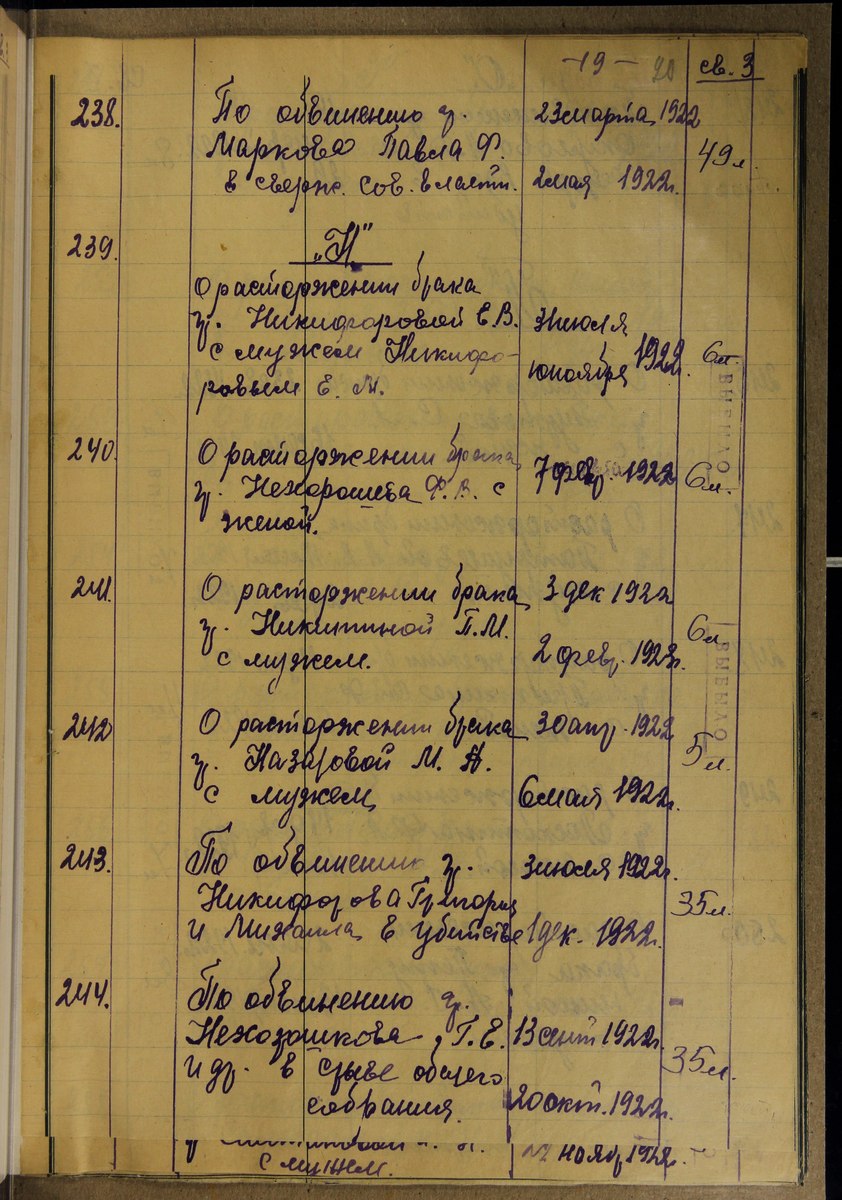 -19- 20 св. 3
238. По обвинению гр. 23 марта 1922
Маркова Павла Ф. 49 л.
в сверж. Сов. власти. 2 мая 1922 г.
239. „Н"
О расторжении брака
гр. Никифоровой Е.В. 3 июля
с мужем Никифо- 1922 г. 6 л.
ровым Е. М. ноября
240. О расторжении брака 7 февр. 1922 6 л.
гр. Нехорошева Ф.В. с
женой.
241. О расторжении брака 3 дек 1922
гр. Никитиной П.М. 6 л.
с мужем. 2 февр. 1923 г.
242 О расторжении брака 30 апр. 1922
гр. Назаровой М. А. 5 л.
с мужем 6 мая 1922 г.
243. По обвинению гр. 3 июля 1922 г.
Никифорова Григория 35 л.
и Михаила в убийстве 1 дек. 1922 г.
244. По обвинению гр.
Нехорошкова Г. Е. 13 сент 1922 г.
и др. в срыве общего 35 л.
собрания. 20 окт. 1922 г.
нояб 1922 г.
с мужем.